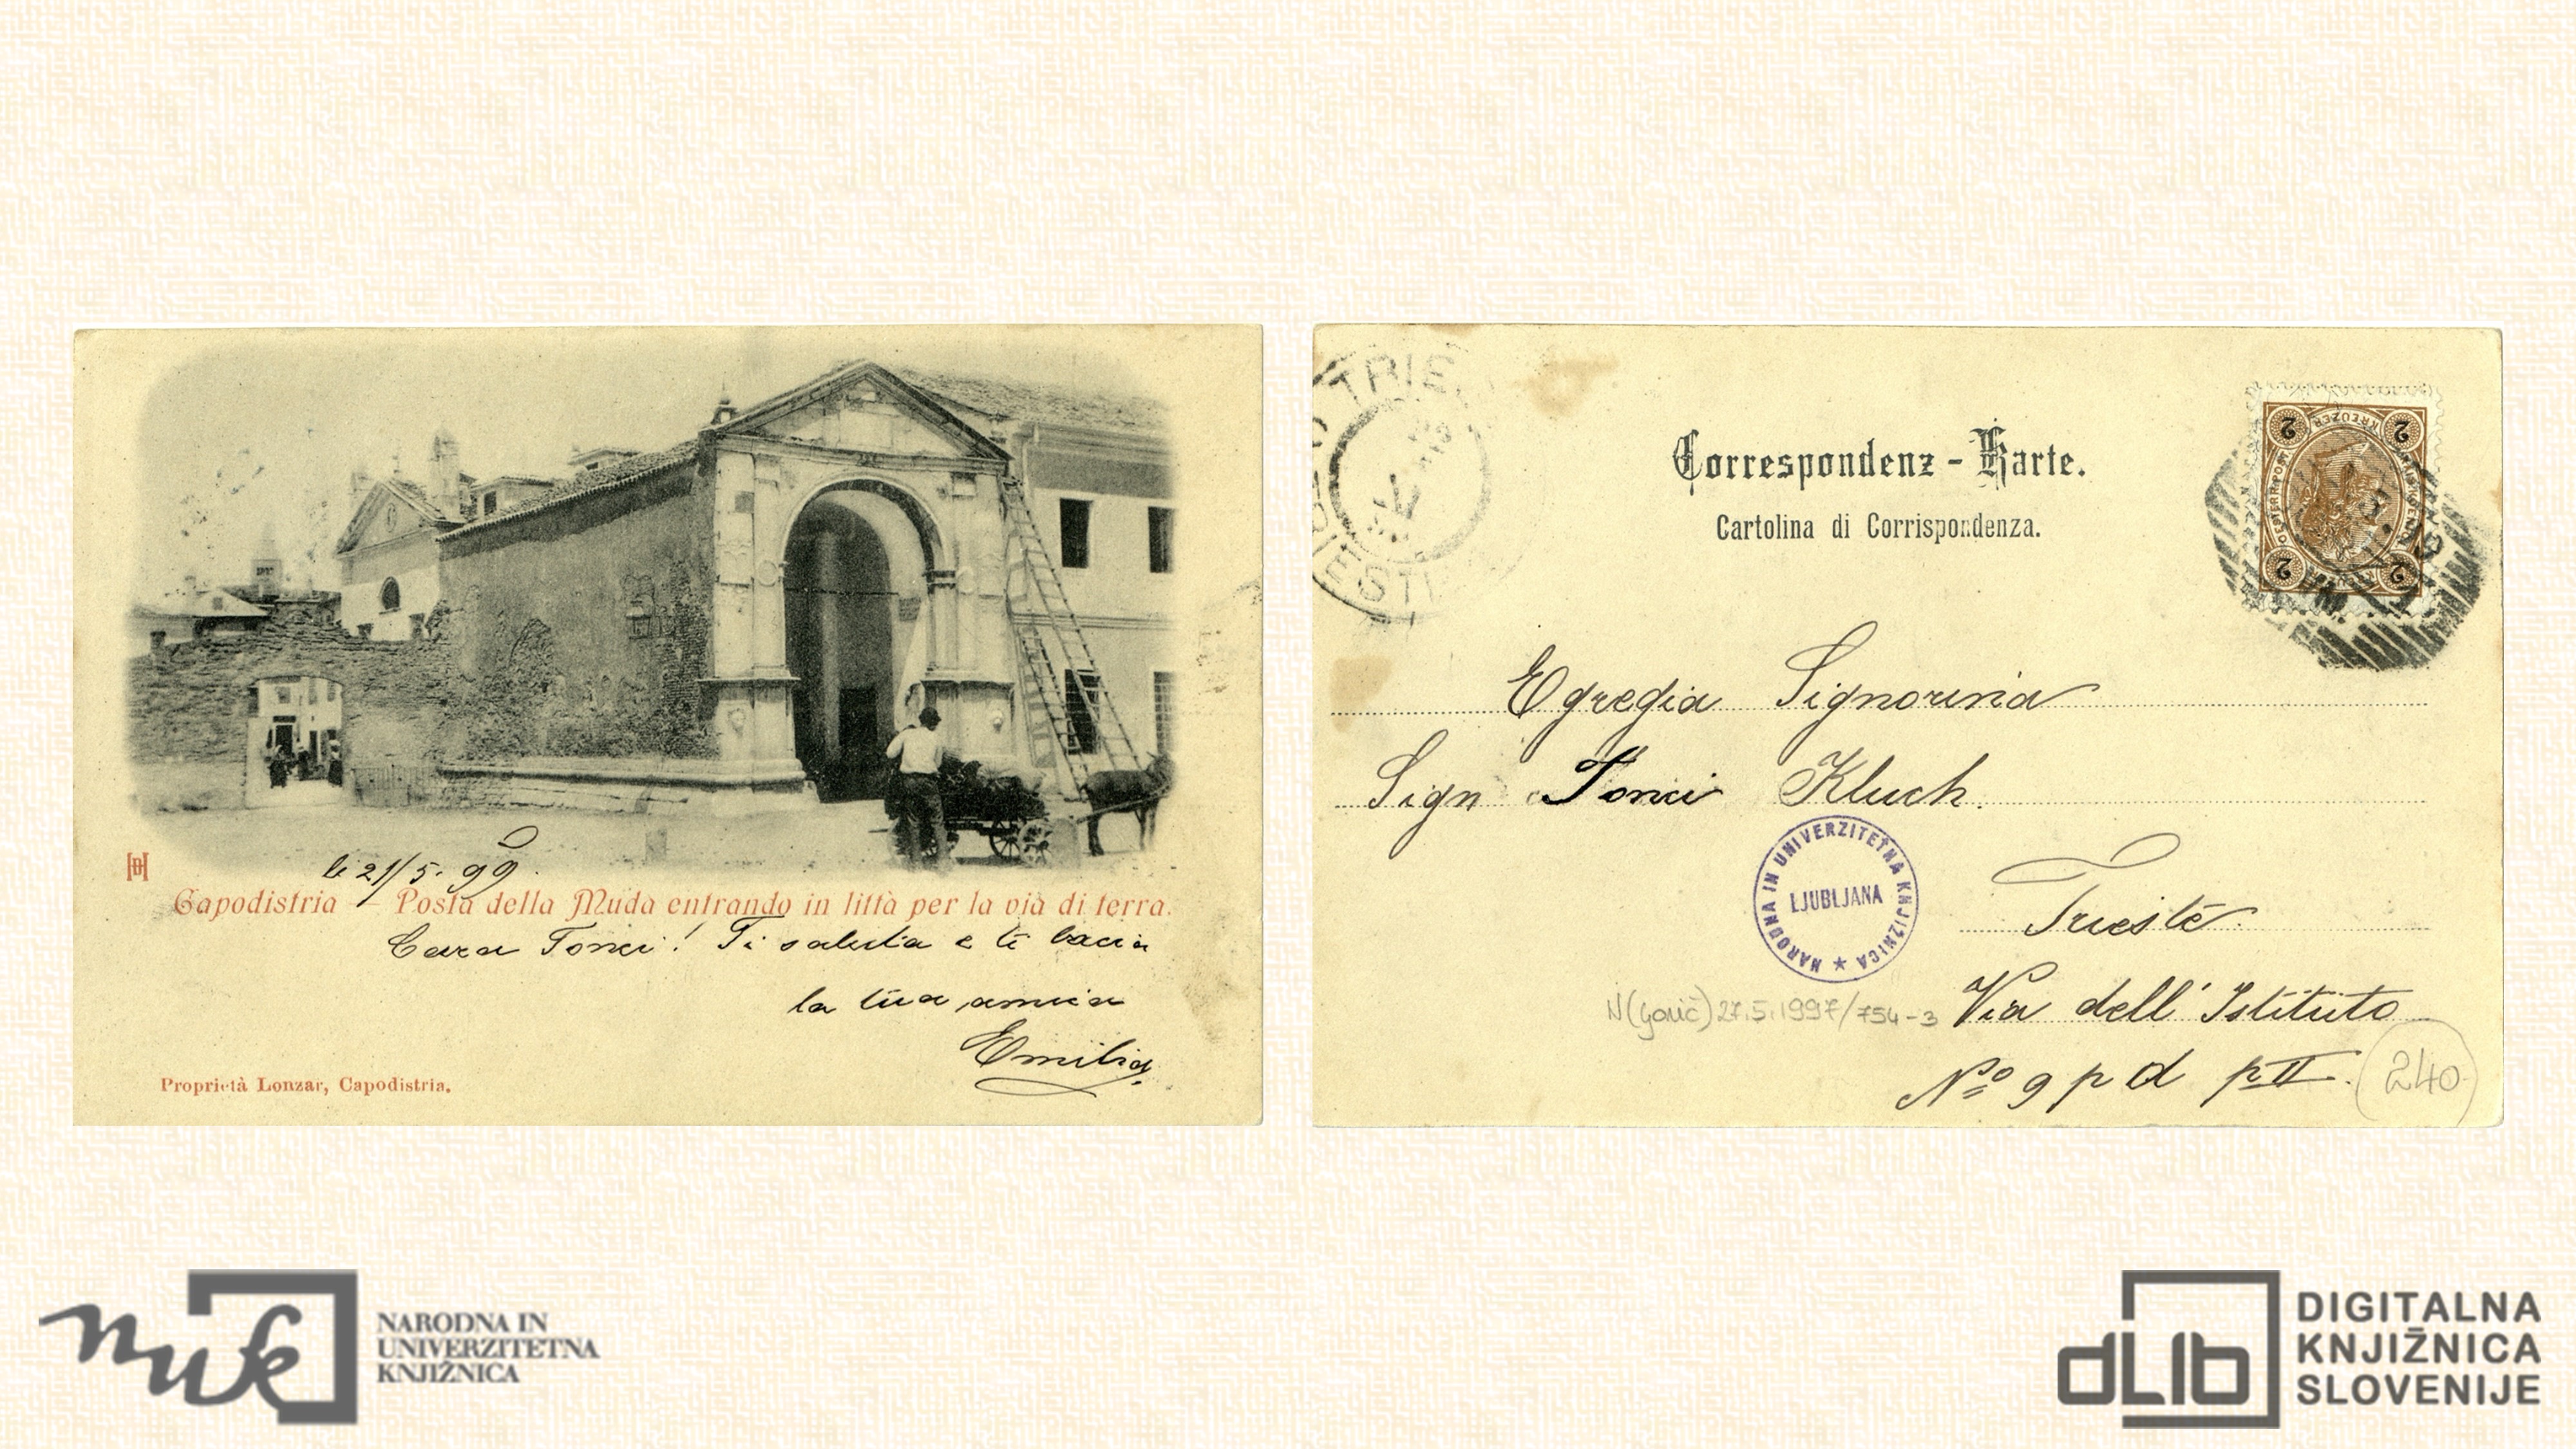 li 21/5. 99.
Capodistria – Posta della Muda entrando in littà per la via di terra.
Cara Tonci! Ti saluta e ti bacia
la tua amica
Emilia
Proprietà Lonzar, Capodistria.
TRIE
TRIESTE
Correspondenz-Karte.
Cartolina di Corrispondenza.
2 KREUZER 2
2 2
Egregia Signorina
Sign Tonci Kluch.
NARODNA IN UNIVERZITETNA KNJIŽNICA ★
LJUBLJANA
Trieste.
N(janič) 27.5.1997/754-3
Via dell' Istituto
Nº 9 p d p II.
240
nuk
NARODNA IN
UNIVERZITETNA
KNJIŽNICA
dLib
DIGITALNA
KNJIŽNICA
SLOVENIJE